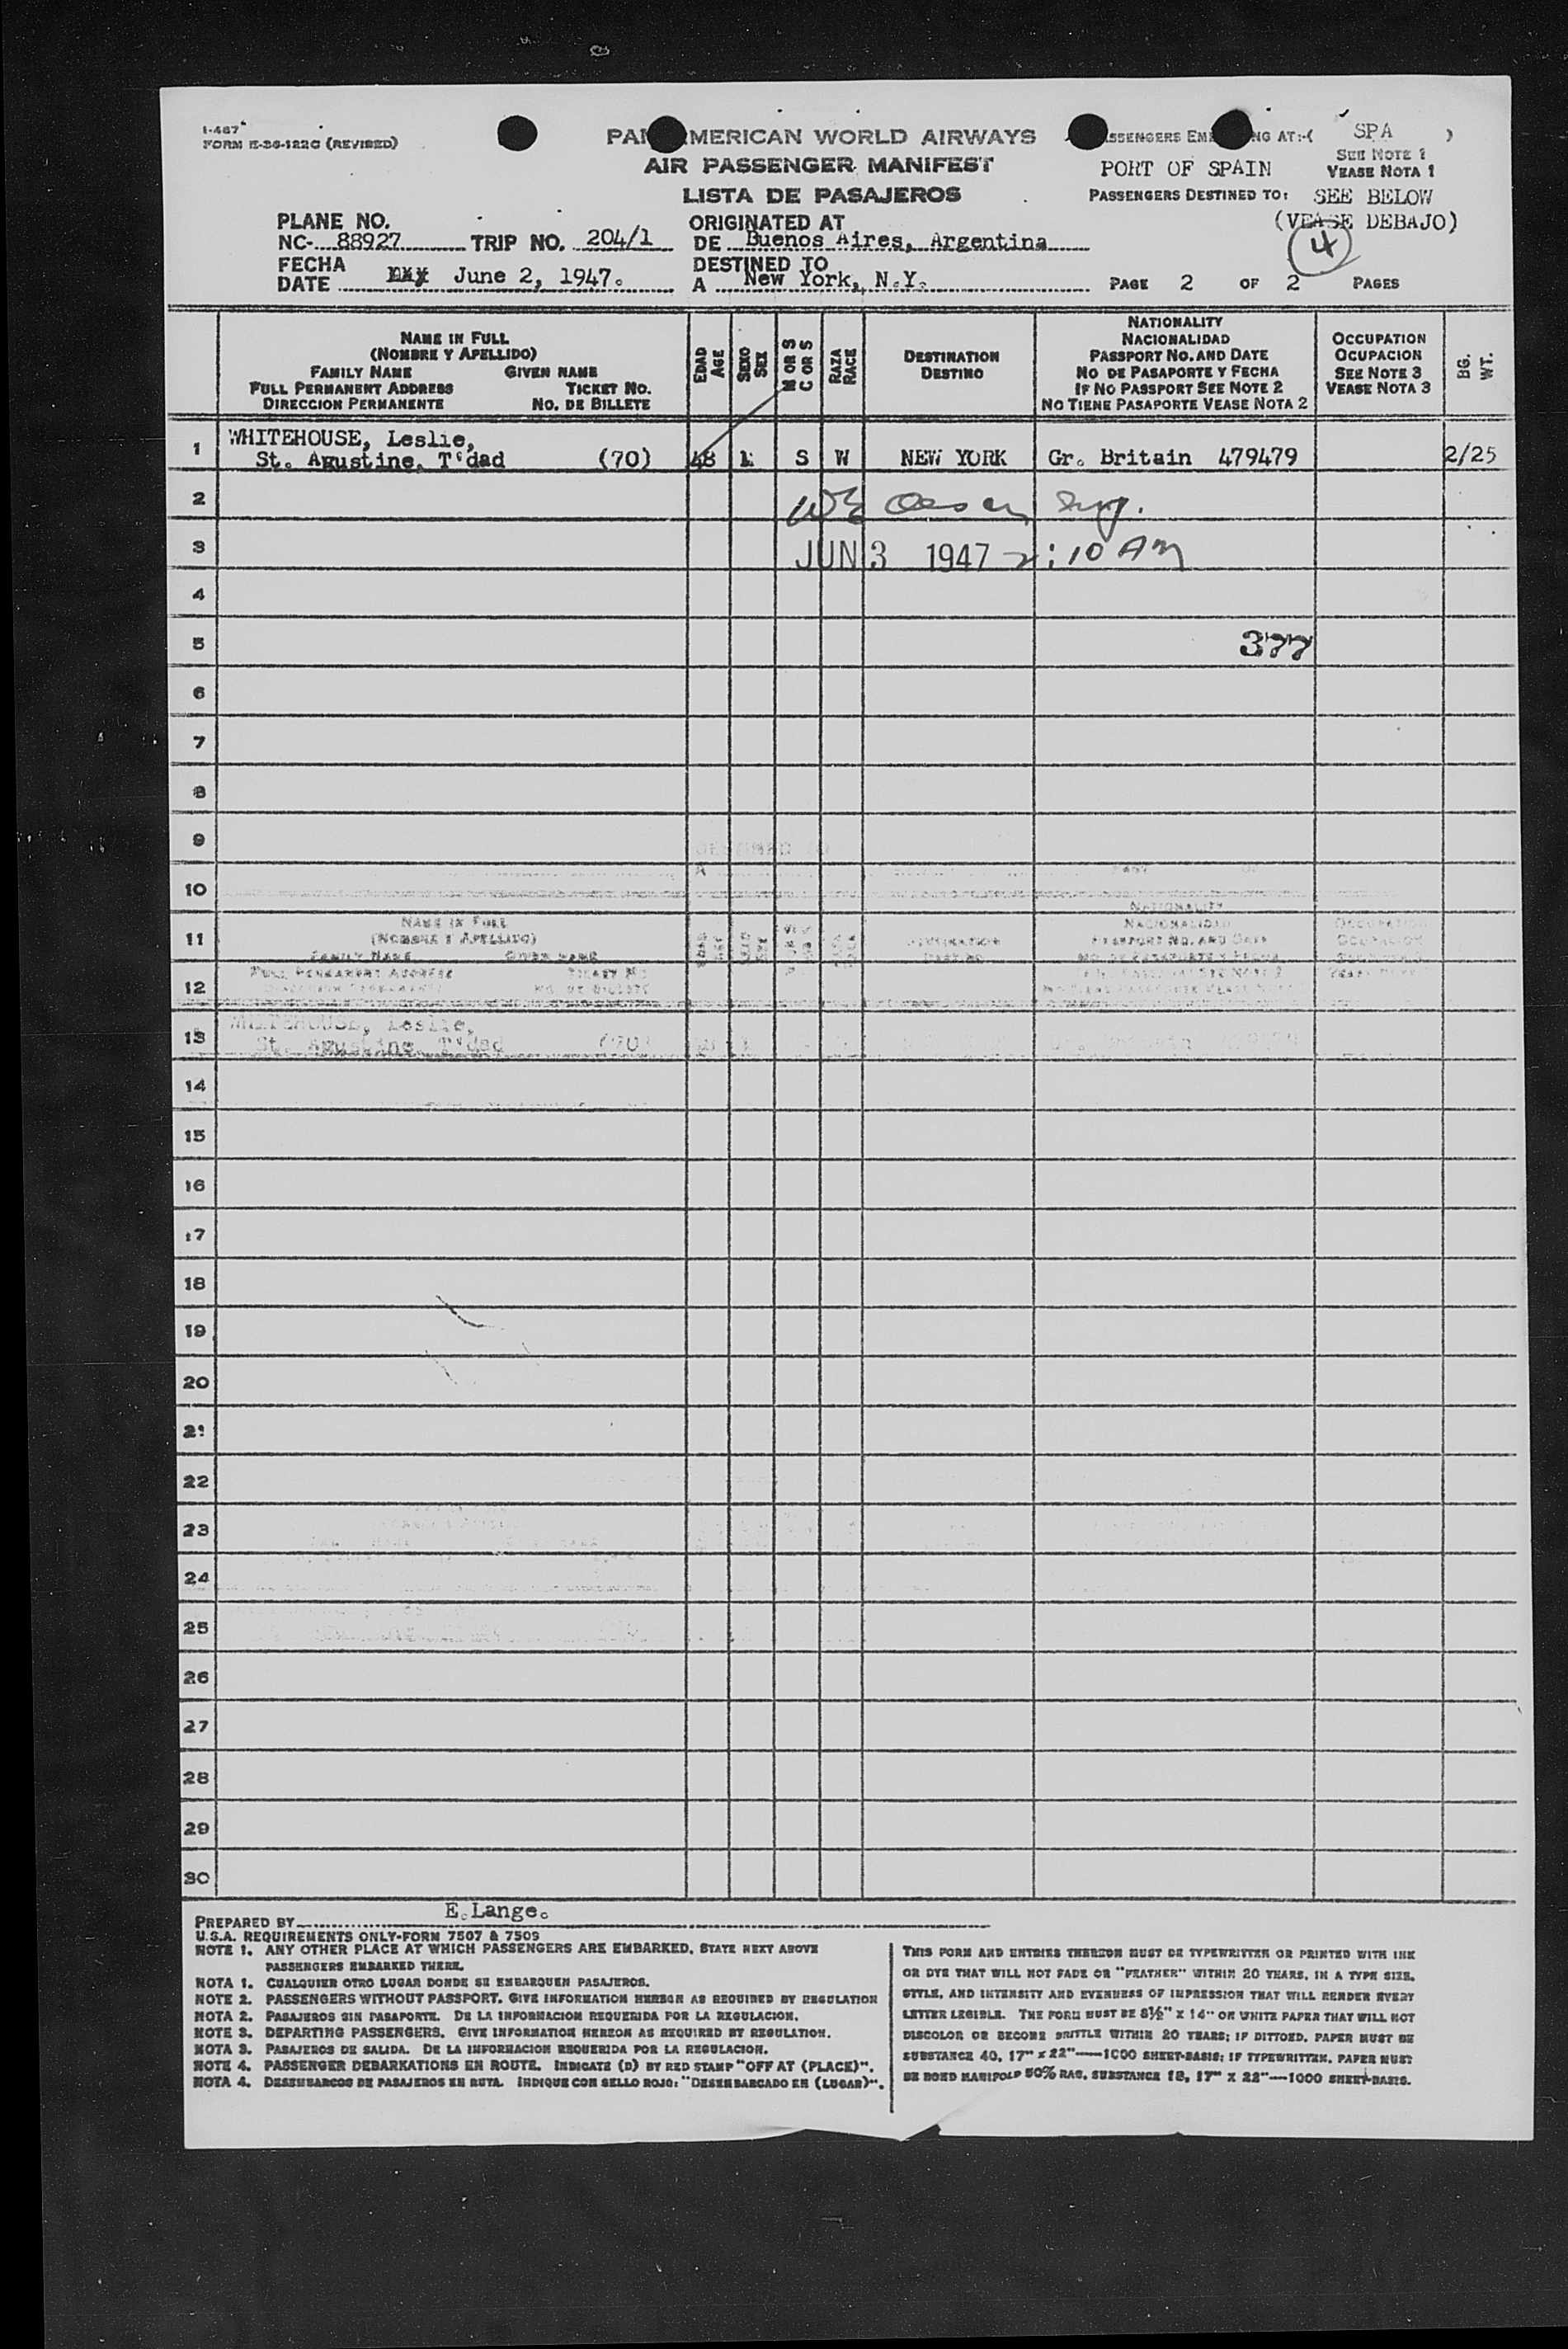 I-467
FORM E-36-122C (REVISED)
PAN AMERICAN WORLD AIRWAYS
AIR PASSENGER MANIFEST
LISTA DE PASAJEROS
PASSENGERS EMBARKING AT:-( SPA )
SEE NOTE 1
PORT OF SPAIN VEASE NOTA 1
PASSENGERS DESTINED TO: SEE BELOW
(VEASE DEBAJO)
4
PLANE NO.
NC- 88927 TRIP NO. 204/1
ORIGINATED AT
DE Buenos Aires, Argentina
FECHA
DATE June 2, 1947.
DESTINED TO
A New York, N.Y.
PAGE 2 OF 2 PAGES
NAME IN FULL
(NOMBRE Y APELLIDO)
FAMILY NAME GIVEN NAME
FULL PERMANENT ADDRESS TICKET NO.
DIRECCION PERMANENTE NO. DE BILLETE
EDAD
AGE
SEXO
SEX
M OR S
C OR S
RAZA
RACE
DESTINATION
DESTINO
NATIONALITY
NACIONALIDAD
PASSPORT NO. AND DATE
NO DE PASAPORTE Y FECHA
IF NO PASSPORT SEE NOTE 2
NO TIENE PASAPORTE VEASE NOTA 2
OCCUPATION
OCUPACION
SEE NOTE 3
VEASE NOTA 3
BG.
WT.
1 WHITEHOUSE, Leslie,
St. Agustine, T'dad (70) 48 S W NEW YORK Gr. Britain 479479 2/25
2
3 JUN 3 1947 2:10 AM
4
5 377
6
7
8
9
10
11
12
13 WHITEHOUSE, Leslie,
St. Agustine, T'dad (70)
14
15
16
17
18
19
20
21
22
23
24
25
26
27
28
29
30
PREPARED BY E.Lange.
U.S.A. REQUIREMENTS ONLY-FORM 7507 & 7509
NOTE 1. ANY OTHER PLACE AT WHICH PASSENGERS ARE EMBARKED, STATE NEXT ABOVE
PASSENGERS EMBARKED THERE.
NOTA 1. CUALQUIER OTRO LUGAR DONDE SE EMBARQUEN PASAJEROS.
NOTE 2. PASSENGERS WITHOUT PASSPORT. GIVE INFORMATION HEREON AS REQUIRED BY REGULATION
NOTA 2. PASAJEROS SIN PASAPORTE. DE LA INFORMACION REQUERIDA POR LA REGULACION.
NOTE 3. DEPARTING PASSENGERS. GIVE INFORMATION HEREON AS REQUIRED BY REGULATION.
NOTA 3. PASAJEROS DE SALIDA. DE LA INFORMACION REQUERIDA POR LA REGULACION.
NOTE 4. PASSENGER DEBARKATIONS EN ROUTE. INDICATE (D) BY RED STAMP "OFF AT (PLACE)".
NOTA 4. DESEMBARCOS DE PASAJEROS EN RUTA. INDIQUE CON SELLO ROJO: "DESEMBARCADO EN (LUGAR)".
THIS FORM AND ENTRIES THEREON MUST BE TYPEWRITTEN OR PRINTED WITH INK
OR DYE THAT WILL NOT FADE OR "FEATHER" WITHIN 20 YEARS, IN A TYPE SIZE,
STYLE, AND INTENSITY AND EVENNESS OF IMPRESSION THAT WILL RENDER EVERY
LETTER LEGIBLE. THE FORM MUST BE 8½" X 14" OR WHITE PAPER THAT WILL NOT
DISCOLOR OR BECOME BRITTLE WITHIN 20 YEARS; IF DITTOED, PAPER MUST BE
SUBSTANCE 40, 17" X 22"—1000 SHEET-BASIS; IF TYPEWRITTEN, PAPER MUST
BE BOND MANIFOLD 50% RAG, SUBSTANCE 18, 17" X 22"—1000 SHEET-BASIS.